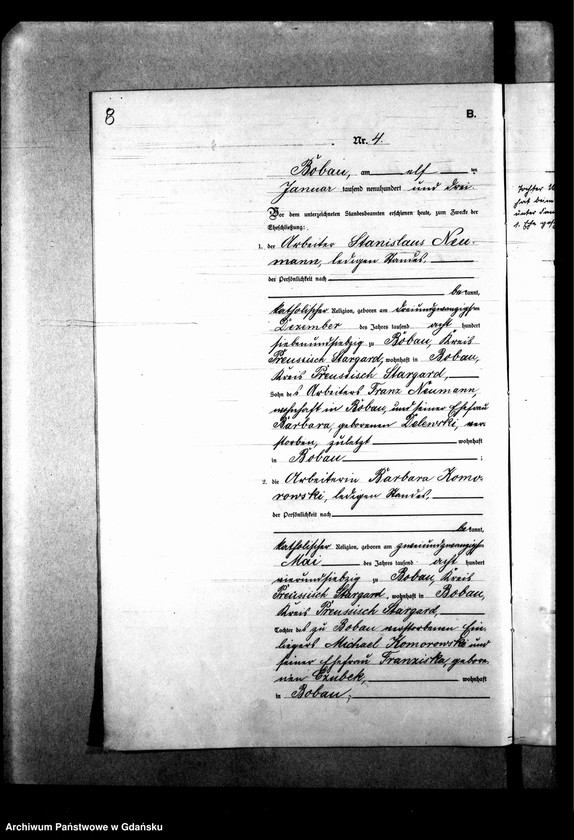 8
B.
Nr. 4.
Bobau, am elf ten
Januar tausend neunhundert und drei
Vor dem unterzeichneten Standesbeamten erschienen heute, zum Zwecke der
Eheschließung:
1. der Arbeiter Stanislaus Neu-
mann, ledigen Standes,
der Persönlichkeit nach
be kannt,
katholischer Religion, geboren am dreiundzwanzigsten
Dezember des Jahres tausend acht hundert
siebenundsiebzig zu Bobau, Kreis
Preussisch Stargard, wohnhaft in Bobau,
Kreis Preussisch Stargard,
Sohn des Arbeiters Franz Neumann,
wohnhaft in Bobau, und seiner Ehefrau
Barbara, geborenen Zelewski, ver-
storben, zuletzt wohnhaft
in Bobau ;
2. die Arbeiterin Barbara Komo-
rowski, ledigen Standes,
der Persönlichkeit nach
be kannt,
katholischer Religion, geboren am zweiundzwanzigsten
Mai des Jahres tausend acht hundert
vierundsiebzig zu Bobau, Kreis
Preussisch Stargard, wohnhaft in Bobau,
Kreis Preussisch Stargard,
Tochter des zu Bobau verstorbenen Ein-
liegers Michael Komorowski und
seiner Ehefrau Franziska, gebore-
nen Czubek, wohnhaft
in Bobau,
Tochter
unter
Archiwum Państwowe w Gdańsku